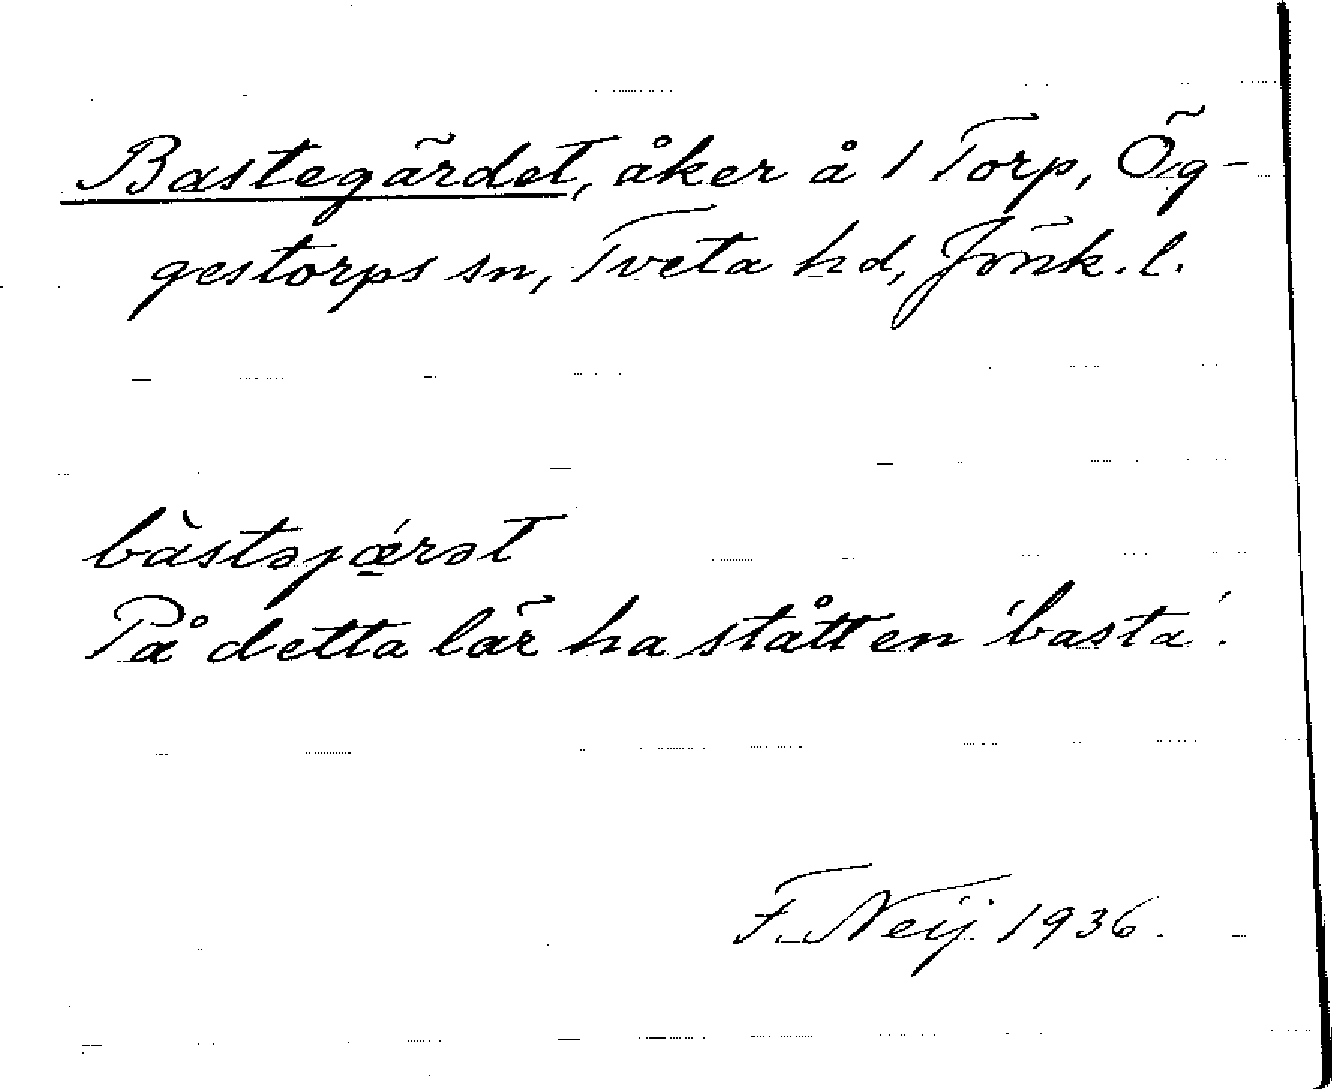 Bastegärdet, åker å 1 Torp, Ög-
gestorps sn, Tveta hd, Jönk. l.
bàstəjǽrət
På detta lär ha stått en 'basta'.
F. Neij. 1936.